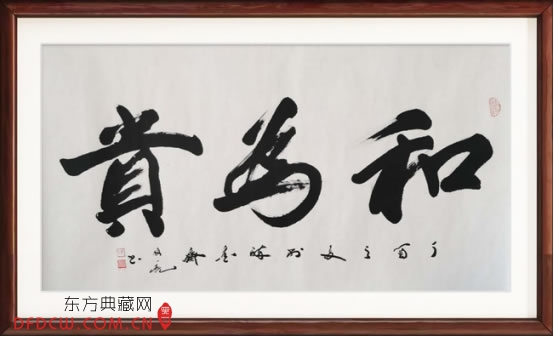 和為貴
丁酉之夏
东方典藏网
DFDCW.COM.CN